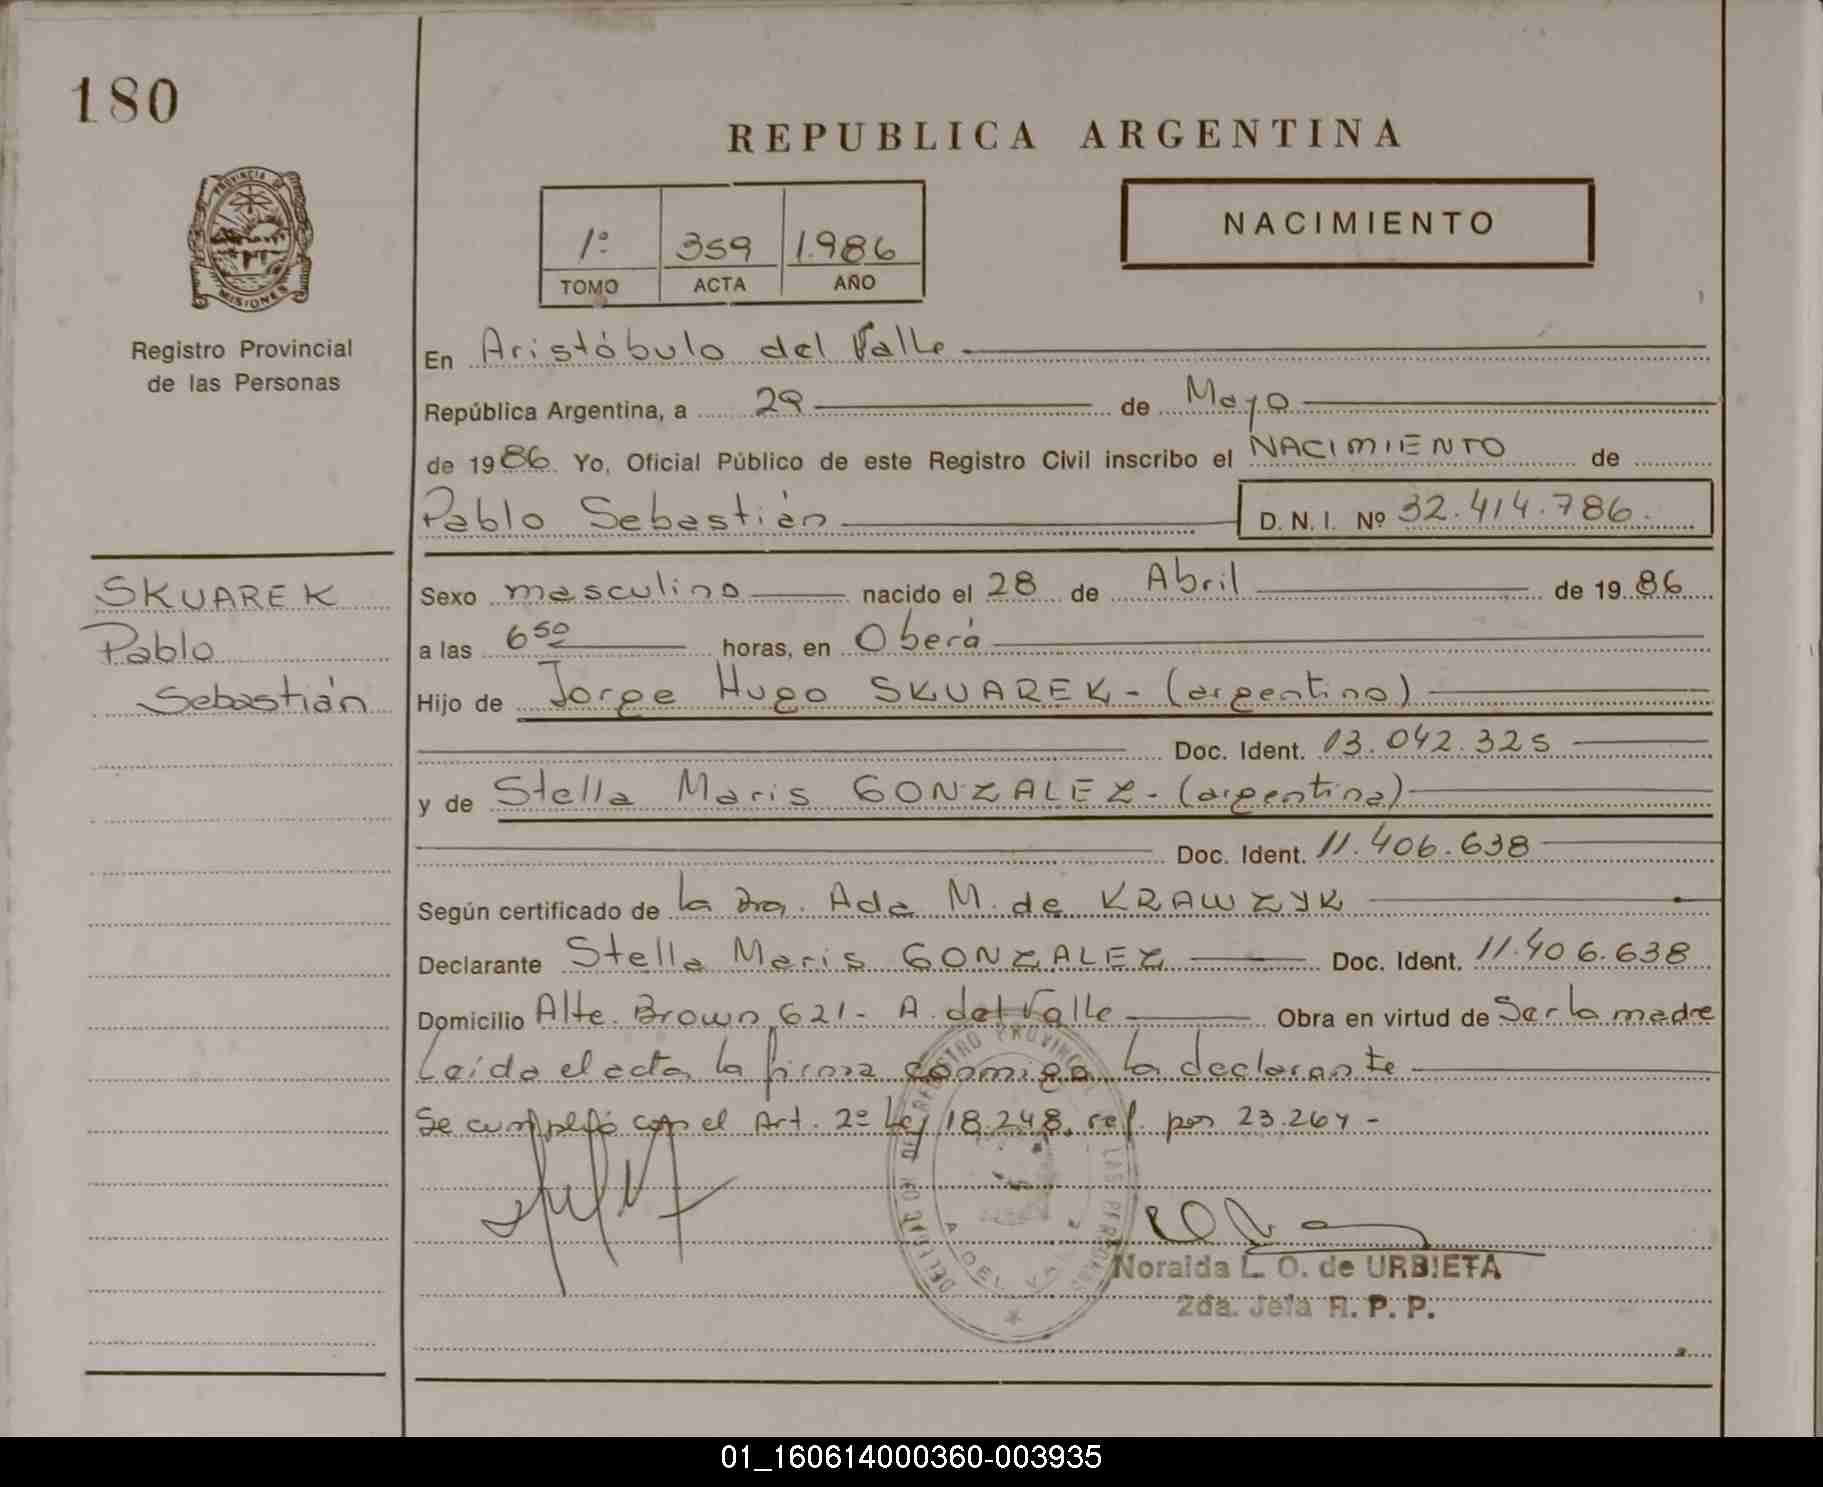 180
REPUBLICA ARGENTINA
PROVINCIA DE
MISIONES
Registro Provincial
de las Personas
1º 359 1.986
TOMO ACTA AÑO
NACIMIENTO
En Aristóbulo del Valle
República Argentina, a 29 de Mayo
de 1986 Yo, Oficial Público de este Registro Civil inscribo el NACIMIENTO de
Pablo Sebastián D. N. I. Nº 32.414.786.
SKUAREK
Pablo
Sebastián
Sexo masculino nacido el 28 de Abril de 1986
a las 6 50 horas, en Oberá
Hijo de Jorge Hugo SKUAREK - (argentino)
Doc. Ident. 13.042.325
y de Stella Maris GONZALEZ - (argentina)
Doc. Ident. 11.406.638
Según certificado de la Dra. Ada M. de KRAWZYK
Declarante Stella Maris GONZALEZ Doc. Ident. 11.406.638
Domicilio Alte. Brown 621 - A. del Valle Obra en virtud de Ser la madre
Leída el acta la firma conmigo la declarante
Se cumplió con el Art. 2º Ley 18.248, ref. por 23.264 -
Noraida L. O. de URBIETA
2da. Jefa R. P. P.
01_160614000360-003935